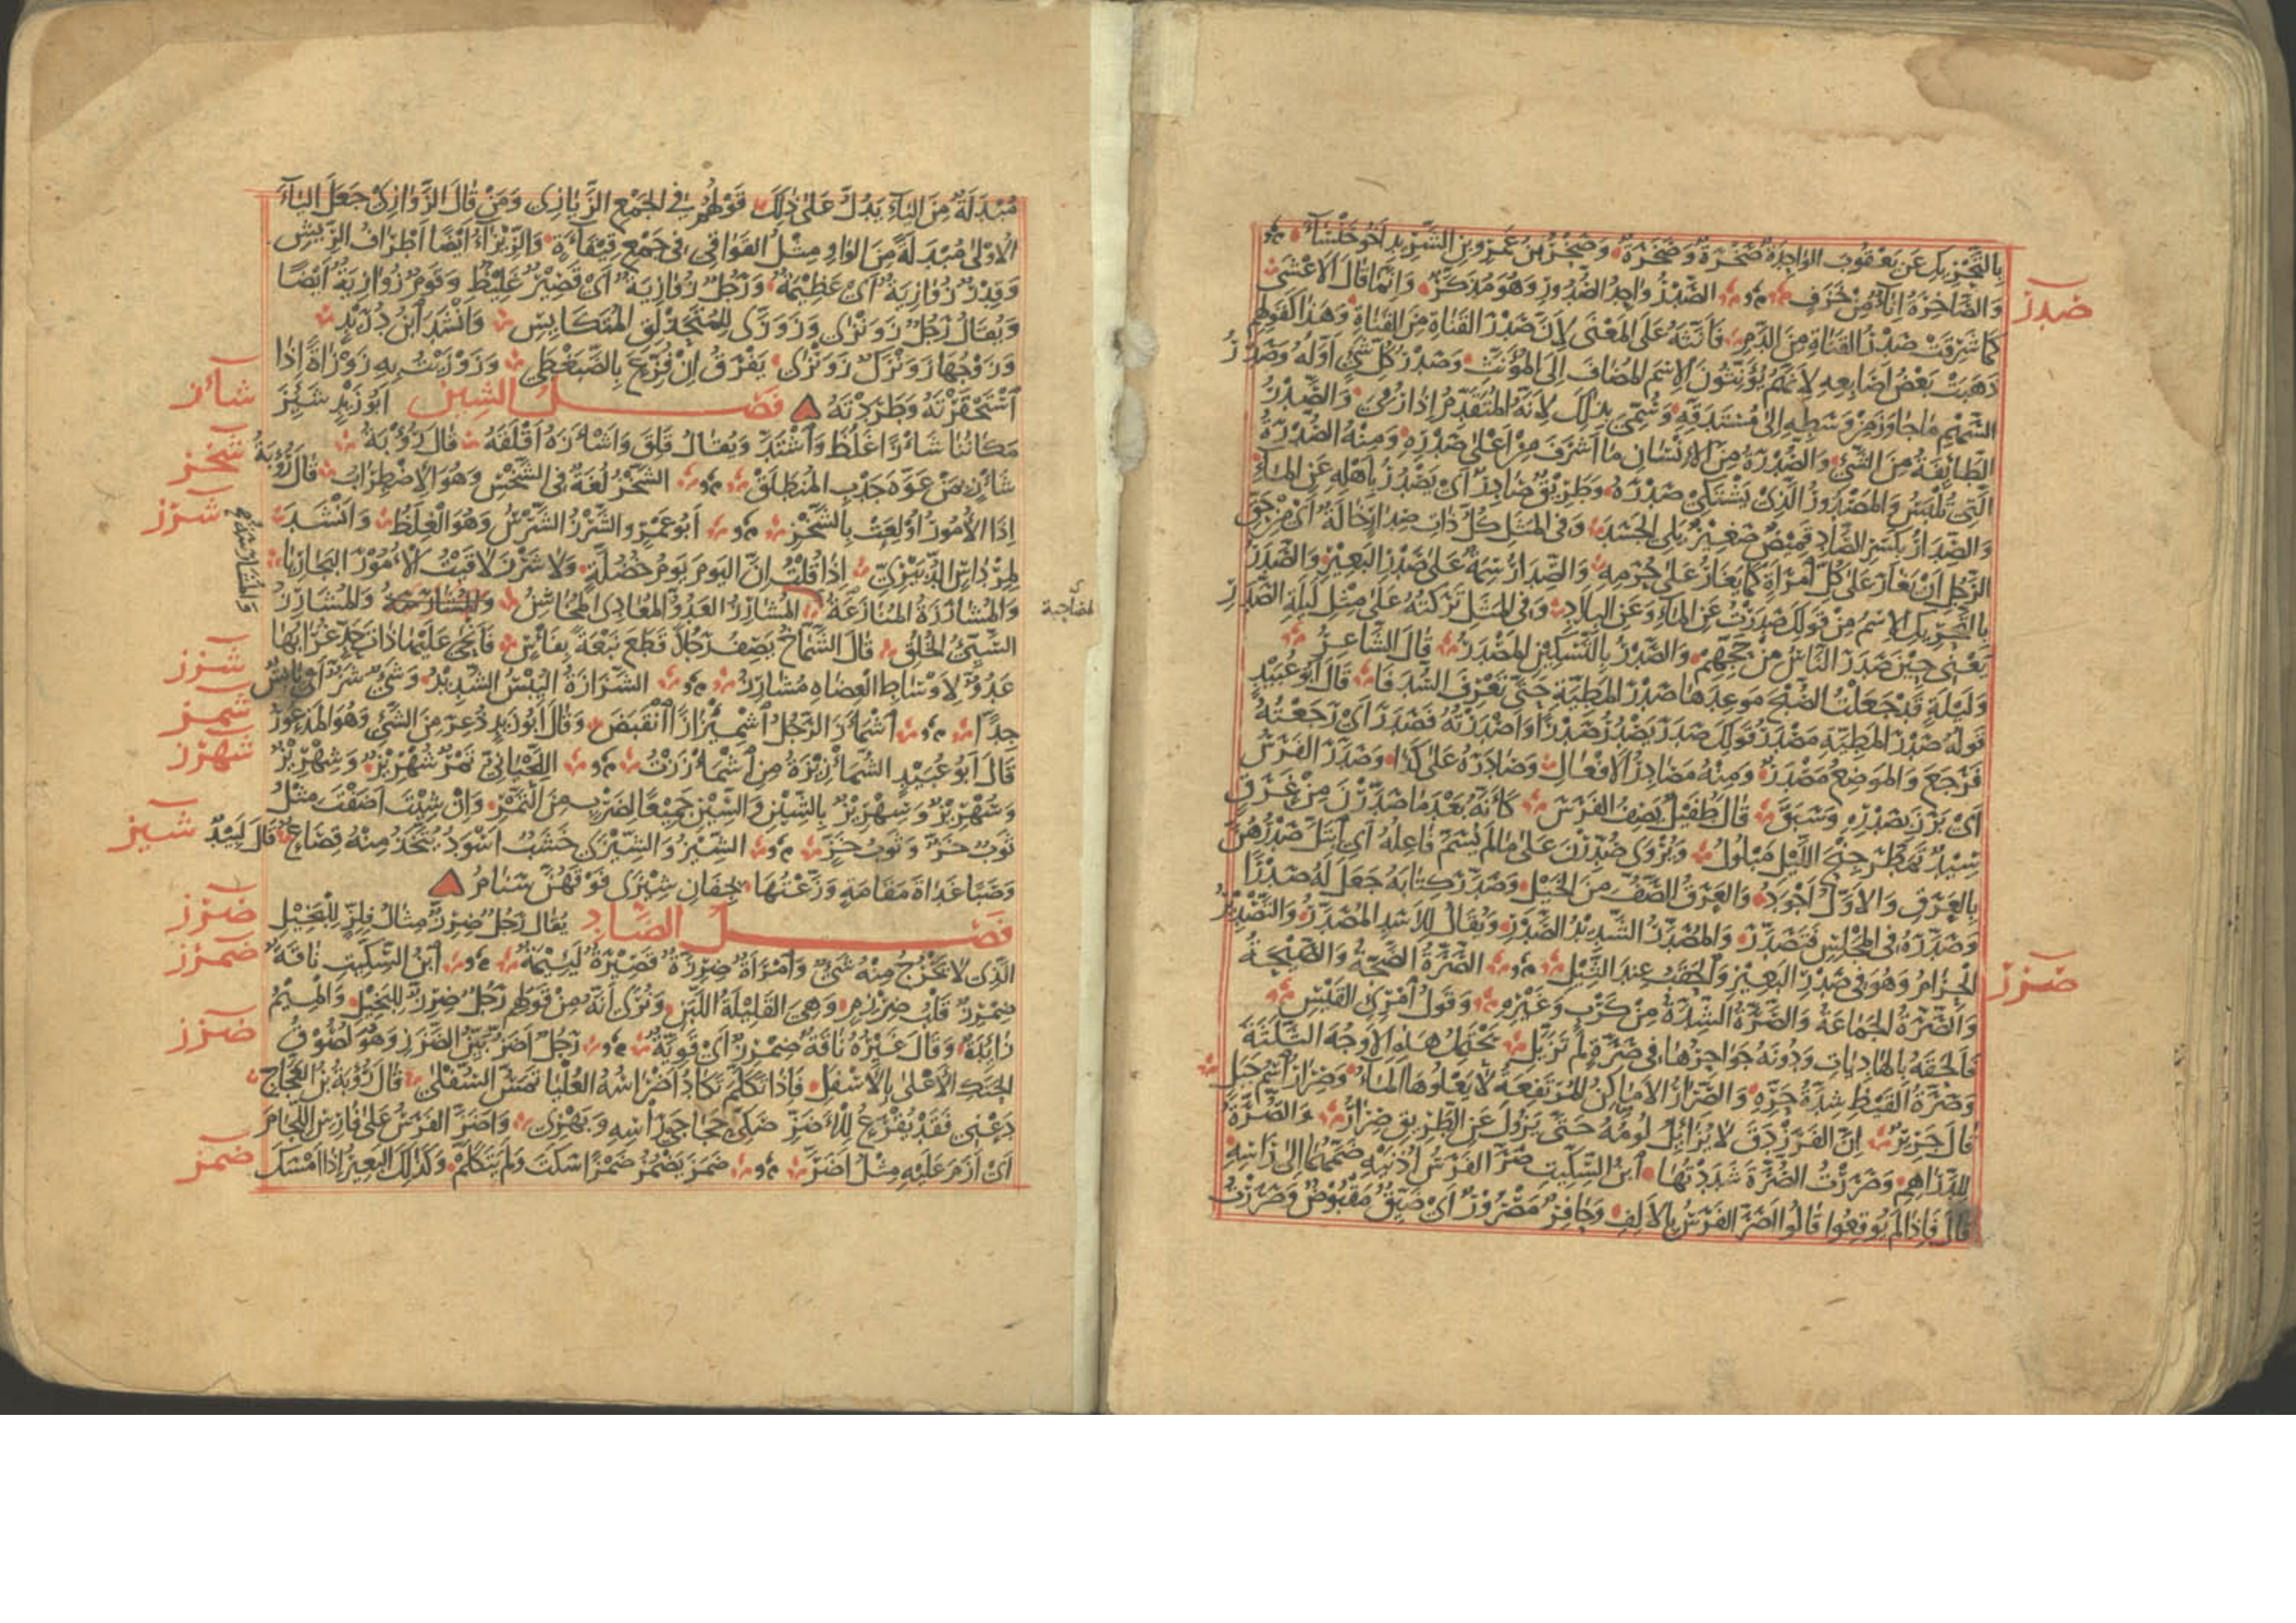 بِالتَّحْرِيكِ عَنْ يَعْقُوبَ الوَاحِدَةُ صَخْرَةٌ وَصَخَرَةٌ وَصَخْرُ بْنُ عَمْرِو بْنِ الشَّرِيدِ أَخُو خَنْسَاءَ
وَالصَّاخِرَةُ إِنَاءٌ مِنْ خَزَفٍ الصَّدْرُ وَاحِدُ الصُّدُورِ وَهُوَ مُذَكَّرٌ وَإِنَّمَا قَالَ الأَعْشَى
صدر
كَمَا شَرِقَتْ صَدْرُ القَنَاةِ مِنَ الدَّمِ فَأَنَّثَهُ عَلَى المَعْنَى لِأَنَّ صَدْرَ القَنَاةِ مِنَ القَنَاةِ وَهَذَا كَقَوْلِهِمْ
ذَهَبَتْ بَعْضُ أَصَابِعِهِ لِأَنَّهُمْ يُؤَنِّثُونَ الاِسْمَ المُضَافَ إِلَى المُؤَنَّثِ وَصَدْرُ كُلِّ شَيْءٍ أَوَّلُهُ وَصَدْرُ
السَّهْمِ مَا جَاوَزَ مِنْ وَسَطِهِ إِلَى مُسْتَدَقِّهِ وَسُمِّيَ بِذَلِكَ لِأَنَّهُ المُتَقَدِّمُ إِذَا رُمِيَ وَالصَّدْرُ
الطَّائِفَةُ مِنَ الشَّيْءِ وَالصُّدْرَةُ مِنَ الإِنْسَانِ مَا أَشْرَفَ مِنْ أَعْلَى صَدْرِهِ وَمِنْهُ الصُّدْرَةُ
الَّتِي تُلْبَسُ وَالمَصْدُورُ الَّذِي يَشْتَكِي صَدْرَهُ وَطَرِيقٌ صَادِرٌ أَيْ يَصْدُرُ بِأَهْلِهِ عَنِ المَاءِ
وَالصِّدَارُ بِكَسْرِ الصَّادِ قَمِيصٌ صَغِيرٌ يَلِي الجَسَدَ وَفِي المَثَلِ كُلُّ ذَاتِ صِدَارٍ خَالَةٌ أَيْ مِنْ حَقِّ
الرَّجُلِ أَنْ يَغَارَ عَلَى كُلِّ امْرَأَةٍ كَمَا يَغَارُ عَلَى حُرَمِهِ وَالصِّدَارُ سِمَةٌ عَلَى صَدْرِ البَعِيرِ وَالصَّدَرُ
بِالتَّحْرِيكِ الاِسْمُ مِنْ قَوْلِكَ صَدَرْتُ عَنِ المَاءِ وَعَنِ البِلَادِ وَفِي المَثَلِ تَرَكْتُهُ عَلَى مِثْلِ لَيْلَةِ الصَّدَرِ
يَعْنِي حِينَ صَدَرَ النَّاسُ مِنْ حَجِّهِمْ وَالصَّدْرُ بِالتَّسْكِينِ المَصْدَرُ قَالَ الشَّاعِرُ
وَلَيْلَةٍ قَدْ جَعَلْتُ الصُّبْحَ مَوْعِدَهَا صَدْرَ المَطِيَّةِ حَتَّى تَعْرِفَ السَّدَفَا قَالَ أَبُو عُبَيْدٍ
قَوْلُهُ صَدْرَ المَطِيَّةِ مَصْدَرُ قَوْلِكَ صَدَرَ يَصْدُرُ صَدْرًا وَأَصْدَرْتُهُ فَصَدَرَ أَيْ رَجَعْتُهُ
فَرَجَعَ وَالمَوْضِعُ مَصْدَرٌ وَمِنْهُ مَصَادِرُ الأَفْعَالِ وَصَادَرَهُ عَلَى كَذَا وَصَدَّرَ الفَرَسُ
أَيْ بَرَزَ بِصَدْرِهِ وَسَبَقَ قَالَ طُفَيْلٌ يَصِفُ الفَرَسَ كَأَنَّهُ بَعْدَمَا صَدَّرْنَ مِنْ عَرَقٍ
سِيدٌ تَمَطَّرَ جِنْحَ اللَّيْلِ مَبْلُولُ وَيُرْوَى صُدِّرْنَ عَلَى مَا لَمْ يُسَمَّ فَاعِلُهُ أَيِ ابْتَلَّ صَدْرُهُنَّ
بِالعَرَقِ وَالأَوَّلُ أَجْوَدُ وَالعَرَقُ الصَّفُّ مِنَ الخَيْلِ وَصَدَّرَ كِتَابَهُ جَعَلَ لَهُ صَدْرًا
وَصَدَّرَهُ فِي المَجْلِسِ فَتَصَدَّرَ وَالمُصَدَّرُ الشَّدِيدُ الصَّدْرِ وَيُقَالُ لِلأَسَدِ المُصَدَّرُ وَالتَّصْدِيرُ
الحِزَامُ وَهُوَ فِي صَدْرِ البَعِيرِ وَالحَقَبُ عِنْدَ الثِّيلِ الصَّرَّةُ الضَّجَّةُ وَالصَّيْحَةُ
صرر
وَالصَّرَّةُ الجَمَاعَةُ وَالصَّرَّةُ الشِّدَّةُ مِنْ كَرْبٍ وَغَيْرِهِ وَقَوْلُ امْرِئِ القَيْسِ
فَأَلْحَقَهُ بِالهَادِيَاتِ وَدُونَهُ جَوَاحِرُهَا فِي صَرَّةٍ لَمْ تَزَيَّلِ يَحْتَمِلُ هَذِهِ الأَوْجُهَ الثَّلَاثَةَ
وَصَرَّةُ القَيْظِ شِدَّةُ حَرِّهِ وَالصِّرَارُ الأَمَاكِنُ المُرْتَفِعَةُ لَا يَعْلُوهَا المَاءُ وَصِرَارٌ اسْمُ جَبَلٍ
قَالَ جَرِيرٌ إِنَّ الفَرَزْدَقَ لَا يُزَايِلُ لُومَهُ حَتَّى يَزُولَ عَنِ الطَّرِيقِ صِرَارُ وَالصُّرَّةُ
لِلدَّرَاهِمِ وَصَرَرْتُ الصُّرَّةَ شَدَدْتُهَا ابْنُ السِّكِّيتِ صَرَّ الفَرَسُ أُذُنَيْهِ ضَمَّهُمَا إِلَى رَأْسِهِ
قَالَ فَإِذَا لَمْ يُوقِعُوا قَالُوا أَصَرَّ الفَرَسُ بِالأَلِفِ وَحَافِرٌ مَصْرُورٌ أَيْ ضَيِّقٌ مَقْبُوضٌ وَصَرَرْتُ
مُبْدَلَةٌ مِنَ اليَاءِ يَدُلُّ عَلَى ذَلِكَ قَوْلُهُمْ فِي الجَمْعِ الزَّيَازِي وَمَنْ قَالَ الزَّوَازِي جَعَلَ اليَاءَ
الأُولَى مُبْدَلَةً مِنَ الوَاوِ مِثْلُ القَوَاقِي فِي جَمْعِ قِيقَاءَةٍ وَالزِّيزَاءُ أَيْضًا أَطْرَافُ الرِّيشِ
وَقِدْرٌ زُوَازِيَةٌ أَيْ عَظِيمَةٌ وَرَجُلٌ زُوَازِيَةٌ أَيْ قَصِيرٌ غَلِيظٌ وَقَوْمٌ زُوَازِيَةٌ أَيْضًا
وَيُقَالُ رَجُلٌ زَوَنْزَى وَزَوَزَّى لِلمُتَحَذْلِقِ المُتَكَايِسِ وَأَنْشَدَ ابْنُ دُرَيْدٍ
وَزَوْجُهَا زَوَنْزَكٌ زَوَنْزَى يَفْرَقُ إِنْ فُزِّعَ بِالضَّبَغْطَى وَزَوْزَيْتُ بِهِ زَوْزَاةً إِذَا
اسْتَحْقَرْتَهُ وَطَرَدْتَهُ فَصْلُ الشِّينِ أَبُو زَيْدٍ شَئِزَ
شأز
مَكَانُنَا شَأَزًا غَلُظَ وَاشْتَدَّ وَيُقَالُ قَلِقَ وَأَشْأَزَهُ أَقْلَقَهُ قَالَ رُؤْبَةُ
شَأْزٍ بِمَنْ عَوَّهَ جَدْبِ المُنْطَلَقْ الشَّخْزُ لُغَةٌ فِي الشَّخْسِ وَهُوَ الاِضْطِرَابُ قَالَ رُؤْبَةُ
شخز
إِذَا الأُمُورُ أُولِعَتْ بِالشَّخْزِ أَبُو عَمْرٍو الشَّرْزُ الشَّرْسُ وَهُوَ الغِلَظُ وَأَنْشَدَ
شرز
لِمِرْدَاسٍ الدُّبَيْرِيِّ إِذَا قُلْتُ إِنَّ اليَوْمَ يَوْمُ خُضُلَّةٍ وَلَا شَرْزَ لَاقَيْتُ الأُمُورَ البَجَارِيَا
وَالمُشَارَزَةُ المُنَازَعَةُ المُشَارِزُ العَدُوُّ المُعَادِي المُخَاشِنُ وَالمُشَارِزُ
المصاحبة
السَّيِّئُ الخُلُقِ قَالَ الشَّمَّاخُ يَصِفُ رَجُلًا قَطَعَ نَبْعَةً بِفَأْسٍ فَأَنْحَى عَلَيْهَا ذَاتَ حَدٍّ غُرَابُهَا
عَدُوٌّ لِأَوْسَاطِ العِضَاهِ مُشَارِزُ الشَّزَازَةُ اليُبْسُ الشَّدِيدُ وَشَيْءٌ شَزٌّ أَيْ يَابِسٌ
شزز
جِدًّا اشْمَأَزَّ الرَّجُلُ اشْمِئْزَازًا انْقَبَضَ وَقَالَ أَبُو زَيْدٍ ذُعِرَ مِنَ الشَّيْءِ وَهُوَ المَذْعُورُ
شمز
قَالَ أَبُو عُبَيْدٍ الشُّمَأْزِيزَةُ مِنِ اشْمَأْزَزْتُ اللِّحْيَانِيُّ تَمْرٌ شُهْرِيزٌ وَشِهْرِيزٌ
شهرز
وَسُهْرِيزٌ وَسِهْرِيزٌ بِالشِّينِ وَالسِّينِ جَمِيعًا لِضَرْبٍ مِنَ التَّمْرِ وَإِنْ شِئْتَ أَضَفْتَ مِثْلُ
ثَوْبُ خَزٍّ وَثَوْبٌ خَزٌّ الشِّيزُ وَالشِّيزَى خَشَبٌ أَسْوَدُ يُتَّخَذُ مِنْهُ قِصَاعٌ قَالَ لَبِيدٌ
شيز
وَصَبًا غَدَاةَ مَقَامَةٍ وَزَّعْتُهَا بِجِفَانِ شِيزَى فَوْقَهُنَّ سَنَامُ
فَصْلُ الضَّادِ يُقَالُ رَجُلٌ ضِرِزٌّ مِثَالُ فِلِزٍّ لِلبَخِيلِ
ضرز
الَّذِي لَا يَخْرُجُ مِنْهُ شَيْءٌ وَامْرَأَةٌ ضِرِزَّةٌ قَصِيرَةٌ لَئِيمَةٌ ابْنُ السِّكِّيتِ نَاقَةٌ
ضمرز
ضِمْرِزٌ قَلْبُ ضِرْزِمٍ وَهِيَ القَلِيلَةُ اللَّبَنِ وَنُرَى أَنَّهُ مِنْ قَوْلِهِمْ رَجُلٌ ضِرِزٌّ لِلبَخِيلِ وَالمِيمُ
زَائِدَةٌ وَقَالَ غَيْرُهُ نَاقَةٌ ضِمْرِزٌ أَيْ قَوِيَّةٌ رَجُلٌ أَضَزُّ بَيِّنُ الضَّزَزِ وَهُوَ لُصُوقُ
ضزز
الحَنَكِ الأَعْلَى بِالأَسْفَلِ فَإِذَا تَكَلَّمَ تَكَادُ أَضْرَاسُهُ العُلْيَا تَمَسُّ السُّفْلَى قَالَ رُؤْبَةُ بْنُ العَجَّاجِ
دَعْنِي فَقَدْ يُقْرَعُ لِلأَضَزِّ صَكِّي حِجَاجَيْ رَأْسِهِ وَبَهْزِي وَأَضَزَّ الفَرَسُ عَلَى فَأْسِ اللِّجَامِ
أَيْ أَزَمَ عَلَيْهِ مِثْلُ أَضَرَّ ضَمَزَ يَضْمِزُ ضَمْزًا سَكَتَ وَلَمْ يَتَكَلَّمْ وَكَذَلِكَ البَعِيرُ إِذَا أَمْسَكَ
ضمز